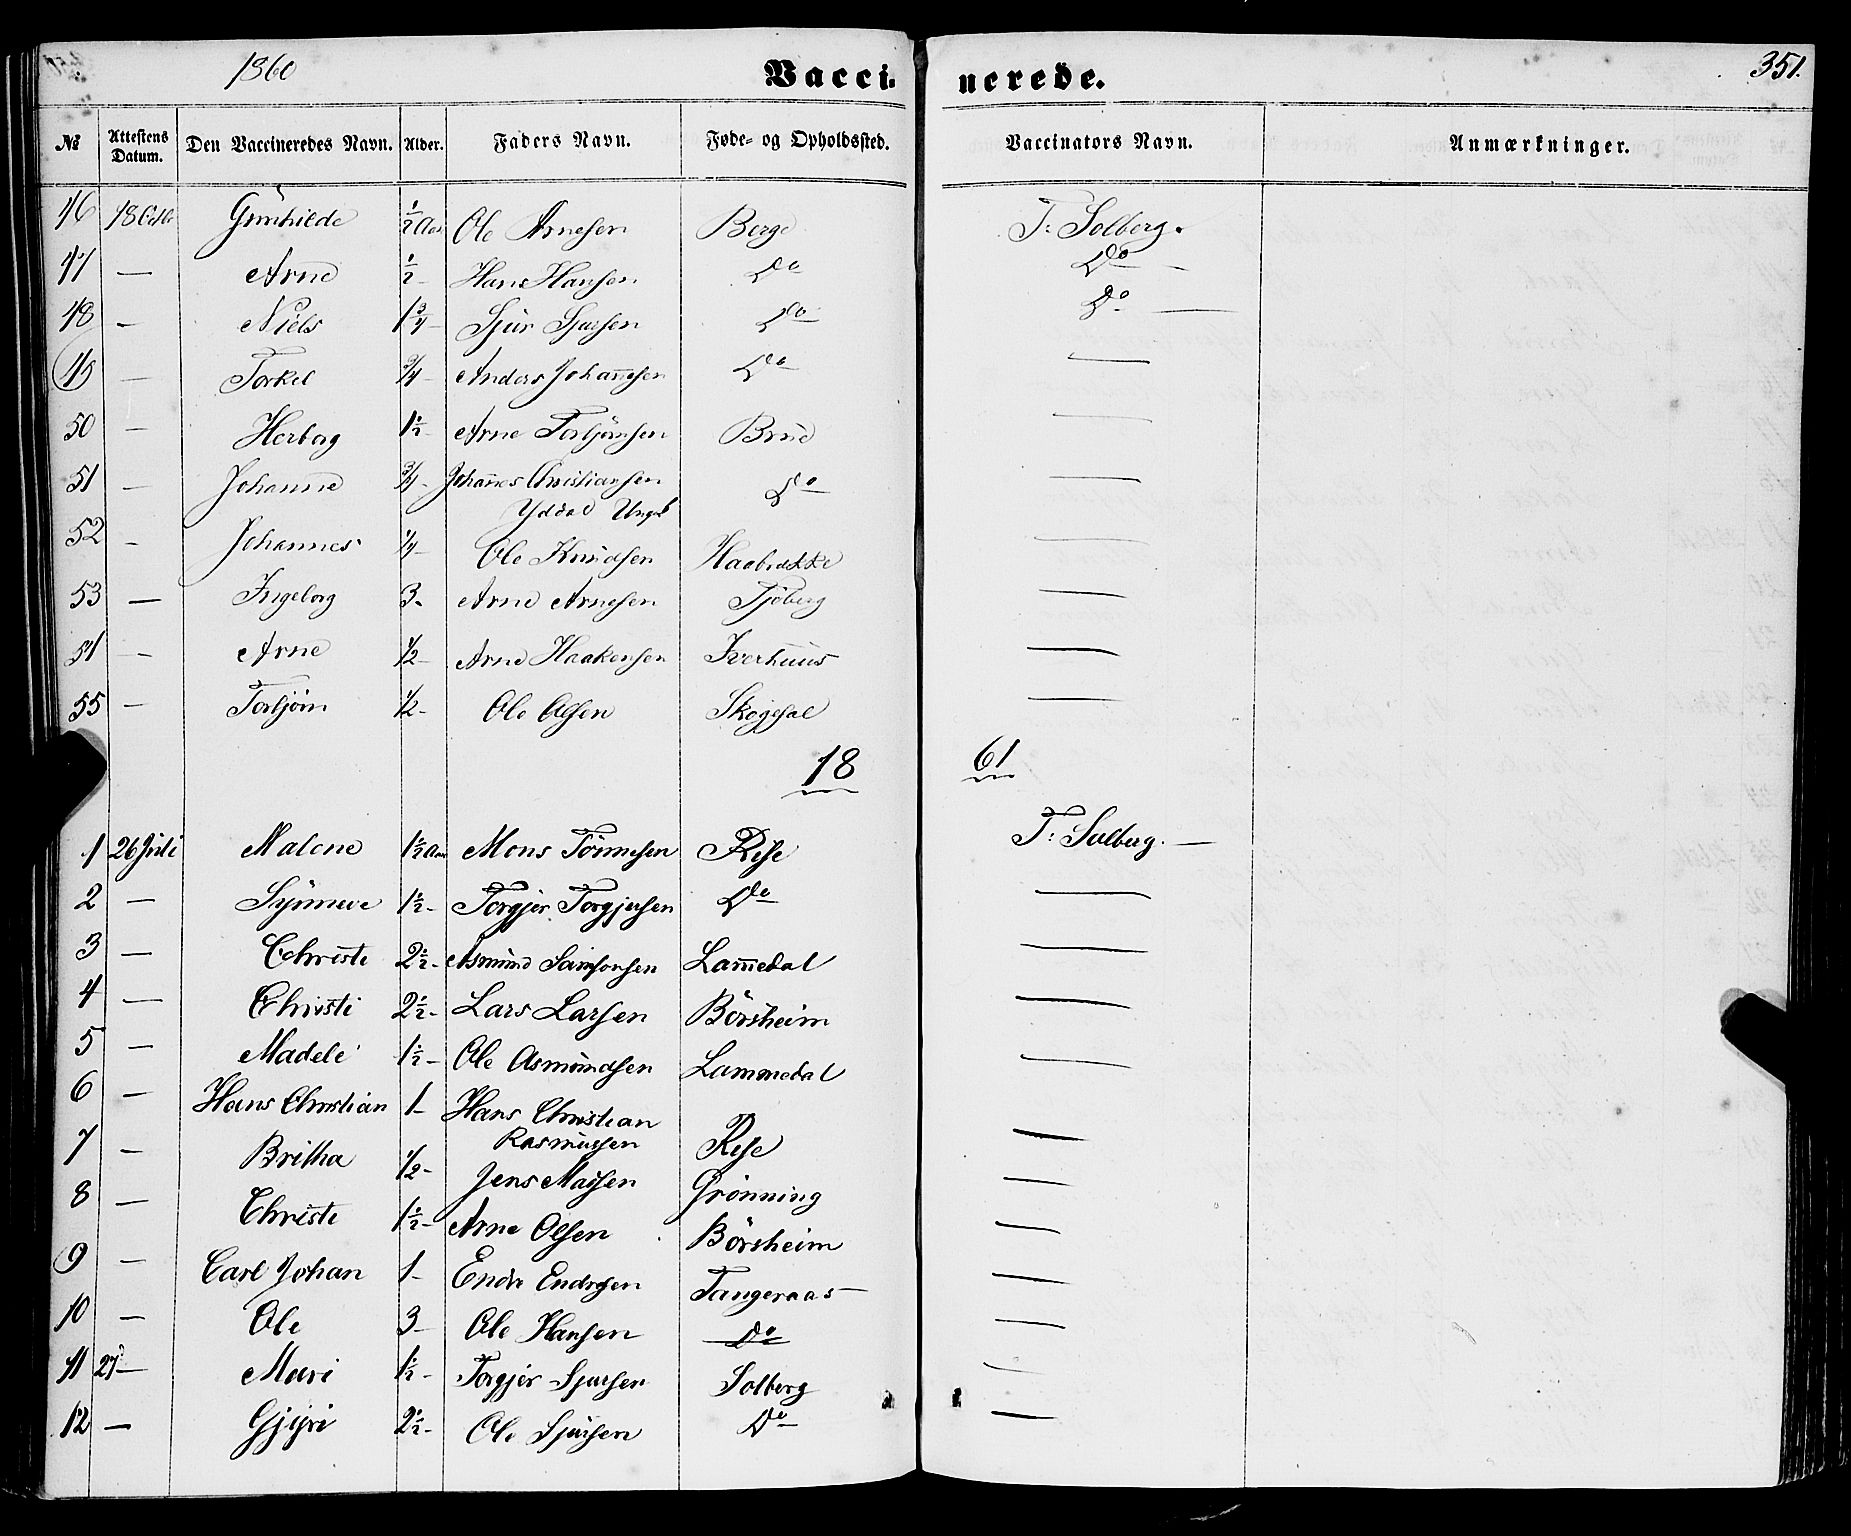 1860 Vacci- nerede. 351.
№ Attestens Datum. Den Vaccineredes Navn. Alder. Faders Navn. Føde- og Opholdssted. Vaccinators Navn. Anmærkninger.
46 18 Octbr Gunhilde ½ Aar Ole Arnesen Berge T: Solberg.
47 — Arne ½ Hans Hansen Do Do —
48 — Niels 1¾ Sjur Sjursen Do Do —
49 — Torkel ¾ Anders Johannesen Do —
50 — Herborg 1½ Arne Torbjönsen —
51 — Johanne ¾ Johannes Christiansen Do —
Yddal
52 — Johannes ¼ Ole Knudsen —
53 — Ingeborg 3 Arne Arnesen Tjöberg —
54 — Arne ½ Arne Haakensen Iverhuus —
55 — Torbjörn ½ Ole Olsen Skogsal —
18 61
1 26 Juli Malene 1½ Aar Mons Tönnesen Rese T: Solberg. —
2 — Synneve 1½ Torgjer Torgjersen Do —
3 — Christi 2½ Asmund Samsonsen Lammedal —
4 — Christi 2½ Lars Larsen Börsheim —
5 — Madele 1½ Ole Asmundsen Lammedal —
6 — Hans Christian 1 Hans Christian
Rasmussen Rese —
7 — Britha ½ Jens Madsen Grönning —
8 — Christi 1½ Arne Olsen Börsheim —
9 — Carl Johan 1 Endre Endresen Tangeraas —
10 — Ole 3 Ole Hansen Do —
11 27 — Mari 1½ Torgjer Sjursen Solberg —
12 — Gjyri 2½ Ole Sjursen Do —